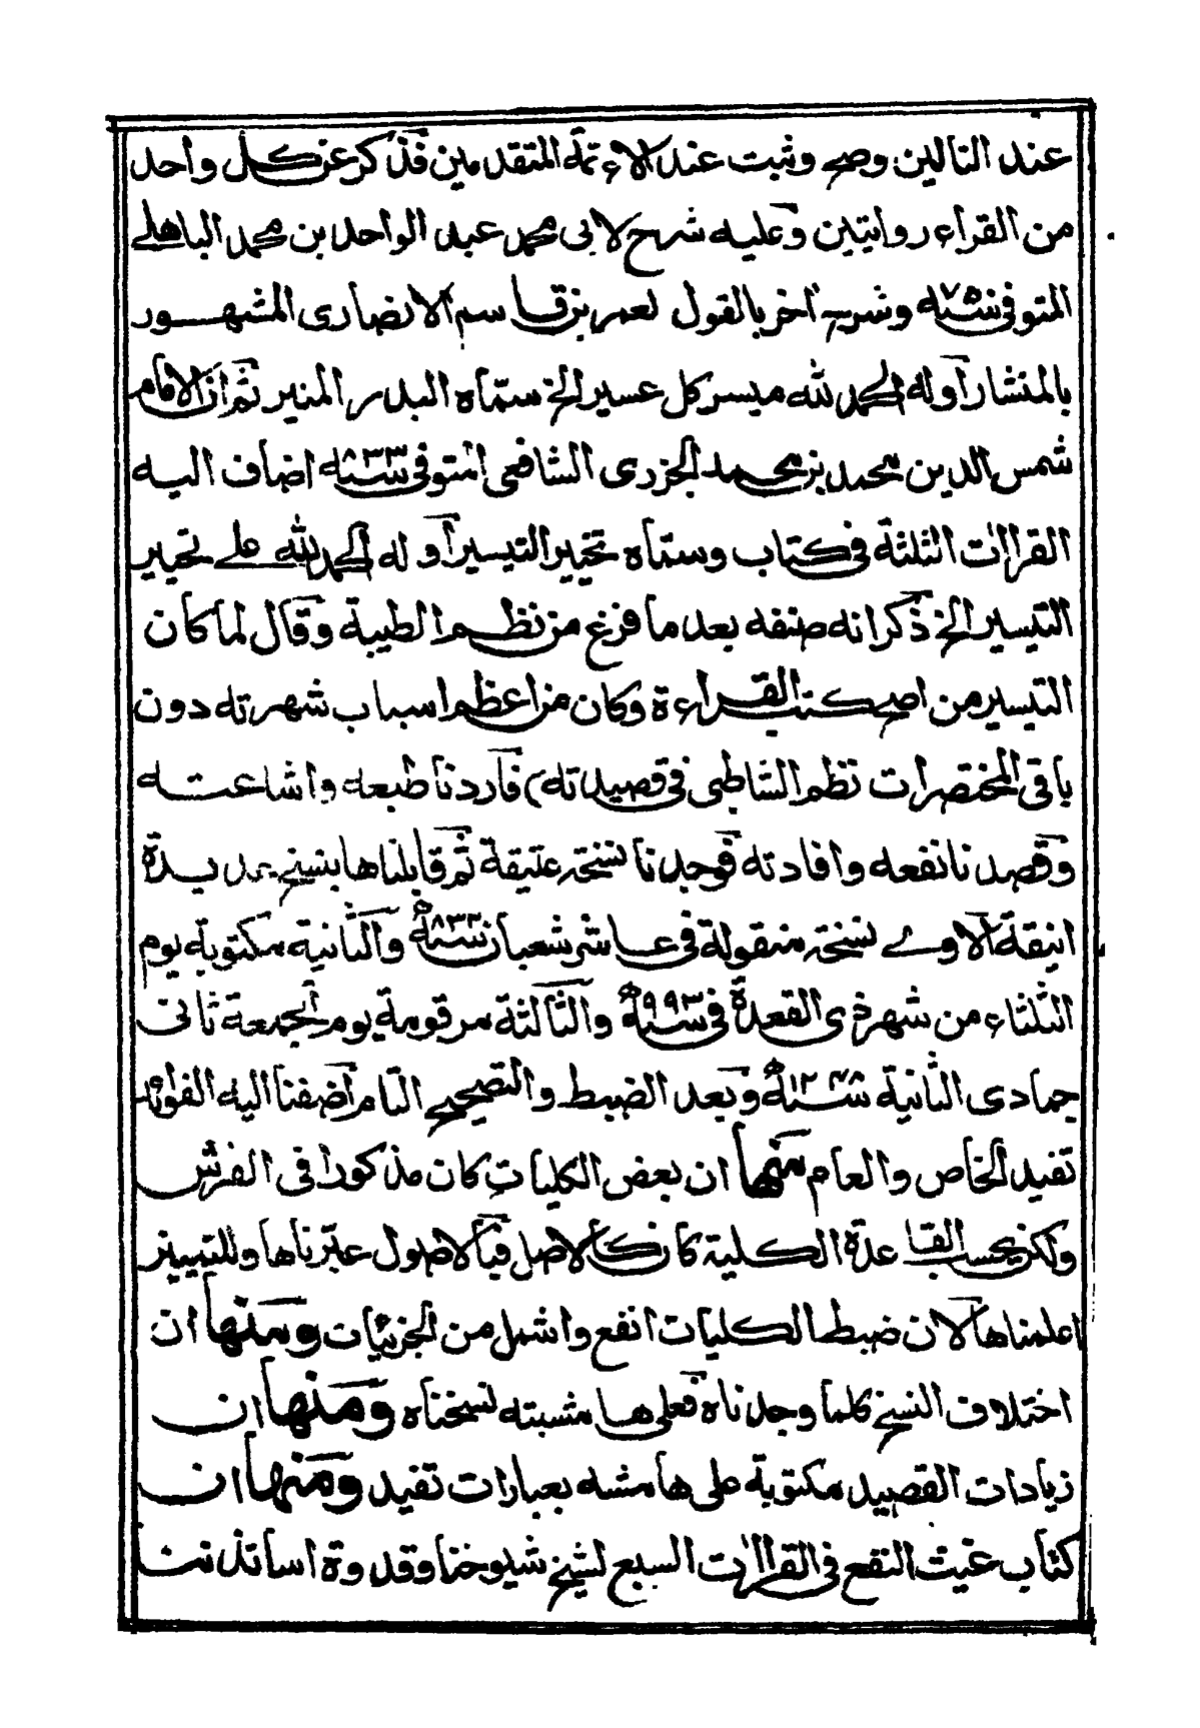 عند التالين وصح وثبت عند الائمة المتقدمين فذكر عن كل واحد
من القراء روايتين وعليه شرح لابى محمد عبد الواحد بن محمد الباهلى
المتوفى سنة ٧٥٠ وشرح آخر بالقول لعمر بن قاسم الانصارى المشهور
بالمنشار اوله الحمد لله ميسر كل عسير الخ سماه البدر المنير ثم ان الامام
شمس الدين محمد بن محمد الجزرى الشافعى المتوفى سنة ٨٣٣ اضاف اليه
القراآت الثلثة فى كتاب وسماه تحبير التيسير اوله الحمد لله على تحبير
التيسير الخ ذكر انه صنفه بعد ما فرغ من نظم الطيبة وقال لما كان
التيسير من اصح كتب القراءة وكان من اعظم اسباب شهرته دون
باقى المختصرات نظم الشاطبى فى قصيدته) فاردنا طبعه واشاعته
وقصدنا نفعه وافادته فوجدنا نسخة عتيقة ثم قابلناها بنسخ عديدة
انيقة الاولى نسخة منقولة فى عاشر شعبان سنة ٨٣٢ والثانية مكتوبة يوم
الثلثاء من شهر ذى القعدة فى سنة ٩٩٣ والثالثة مرقومة يوم الجمعة ثانى
جمادى الثانية سنة ١٢٤٨ وبعد الضبط والتصحيح التام اضفنا اليه الفوائد
تفيد الخاص والعام منها ان بعض الكليات كان مذكورا فى الفرش
ولكن بحسب القاعدة الكلية كان كالاصل فبالاصول عبرناها وللتمييز
اعلمناها لان ضبط الكليات انفع واشمل من الجزئيات ومنها ان
اختلاف النسخ كلما وجدناه فعلى هامشه لسخناه ومنها ان
زيادات القصيد مكتوبة على هامشه بعبارات تفيد ومنها ان
كتاب غيث النفع فى القراآت السبع لشيخ شيوخنا وقدوة اساتذتنا